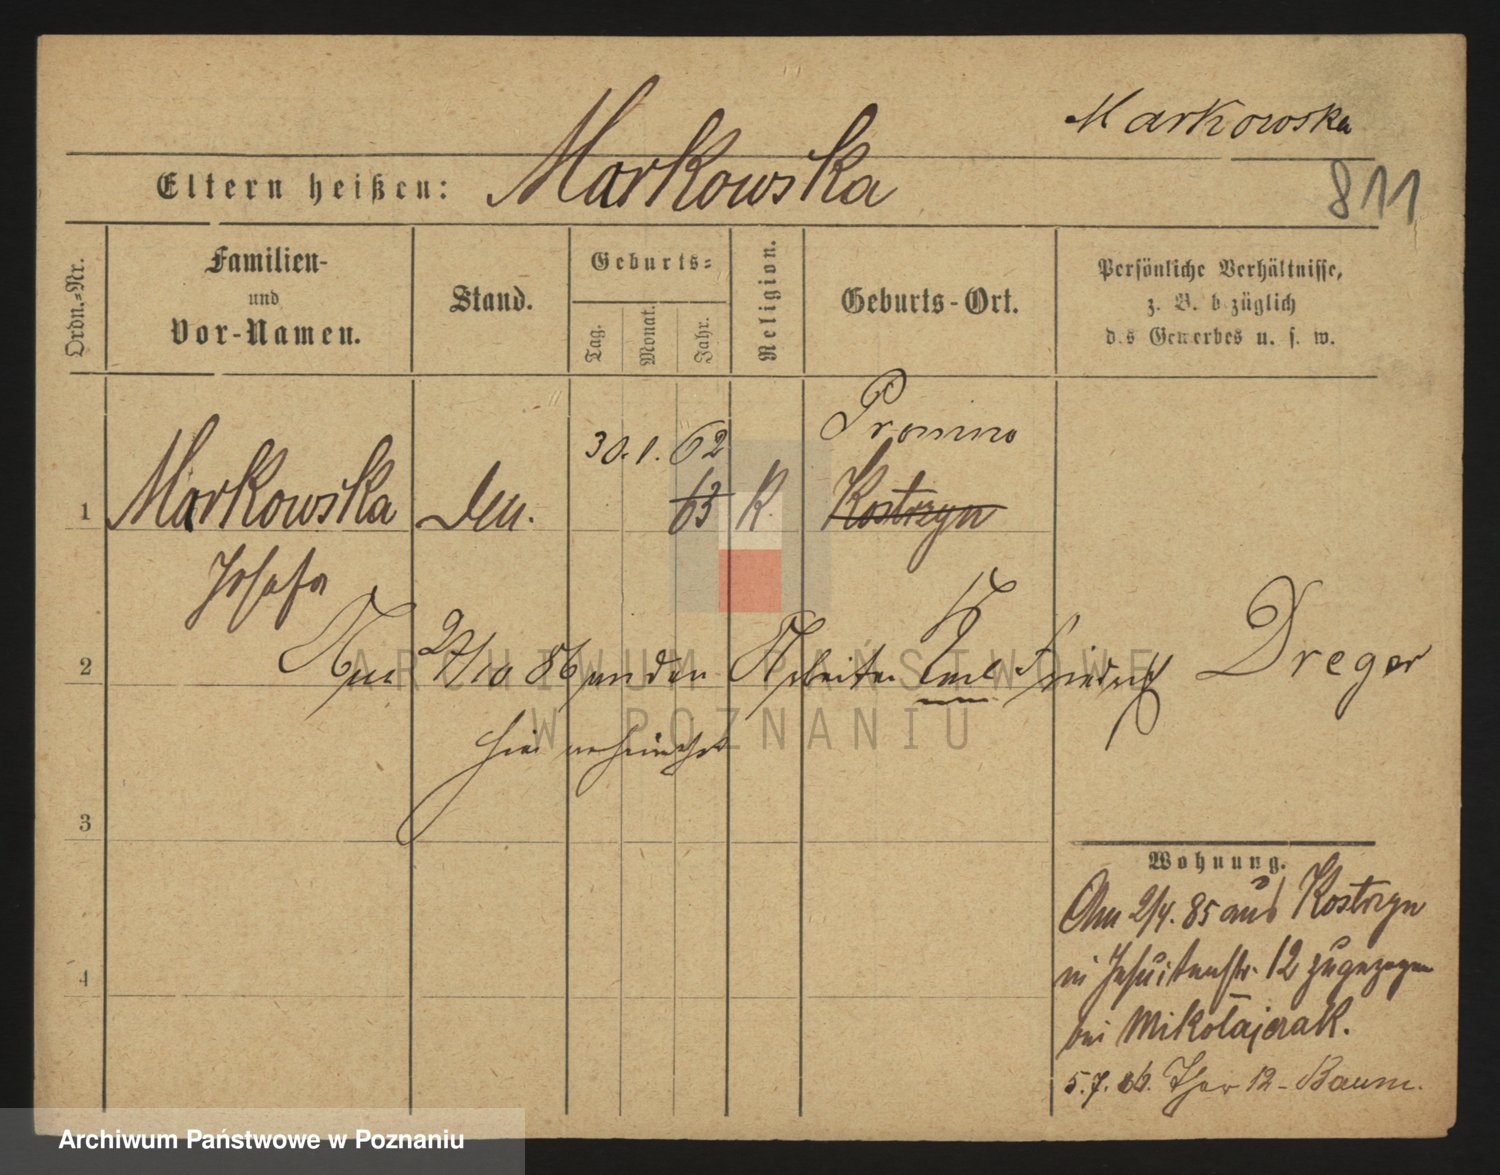 Markowska
Eltern heißen: Markowska
811
Ordn.-Nr.
Familien-
und
Vor-Namen.
Stand.
Geburts-
Tag.
Monat.
Jahr.
Religion.
Geburts-Ort.
Persönliche Verhältnisse,
z. B. bezüglich
des Gewerbes u. s. w.
30. 1. 62
Promno
1 Markowska
63 K. Kostrzyn
Josefa
2 Am 27/10 86 an den Arbeiter Karl Friedrich Dreger
hier verheirathet
3
Wohnung.
Am 2/4. 85 aus Kostrzyn
in Jesuitenstr. 12 zugezogen
bei Mikołajczak.
5. 7. 86. 12 - Baum.
4
ARCHIWUM PAŃSTWOWE
W POZNANIU
Archiwum Państwowe w Poznaniu